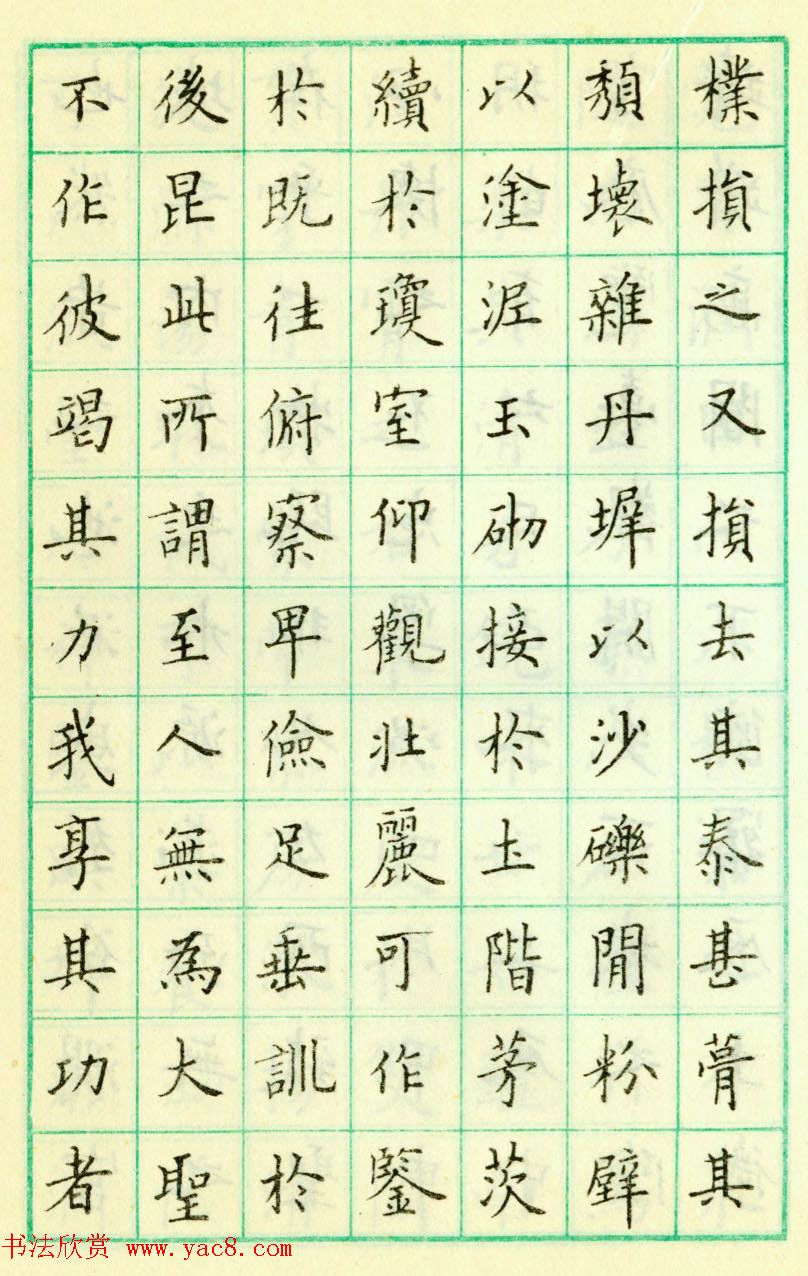 樸損之又損去其泰甚葺其
頹壞雜丹墀以沙礫間粉壁
以塗泥玉砌接於土階茅茨
續於瓊室仰觀壯麗可作鑒
於既往俯察卑儉足垂訓於
後昆此所謂至人無為大聖
不作彼竭其力我享其功者
书法欣赏 www.yac8.com